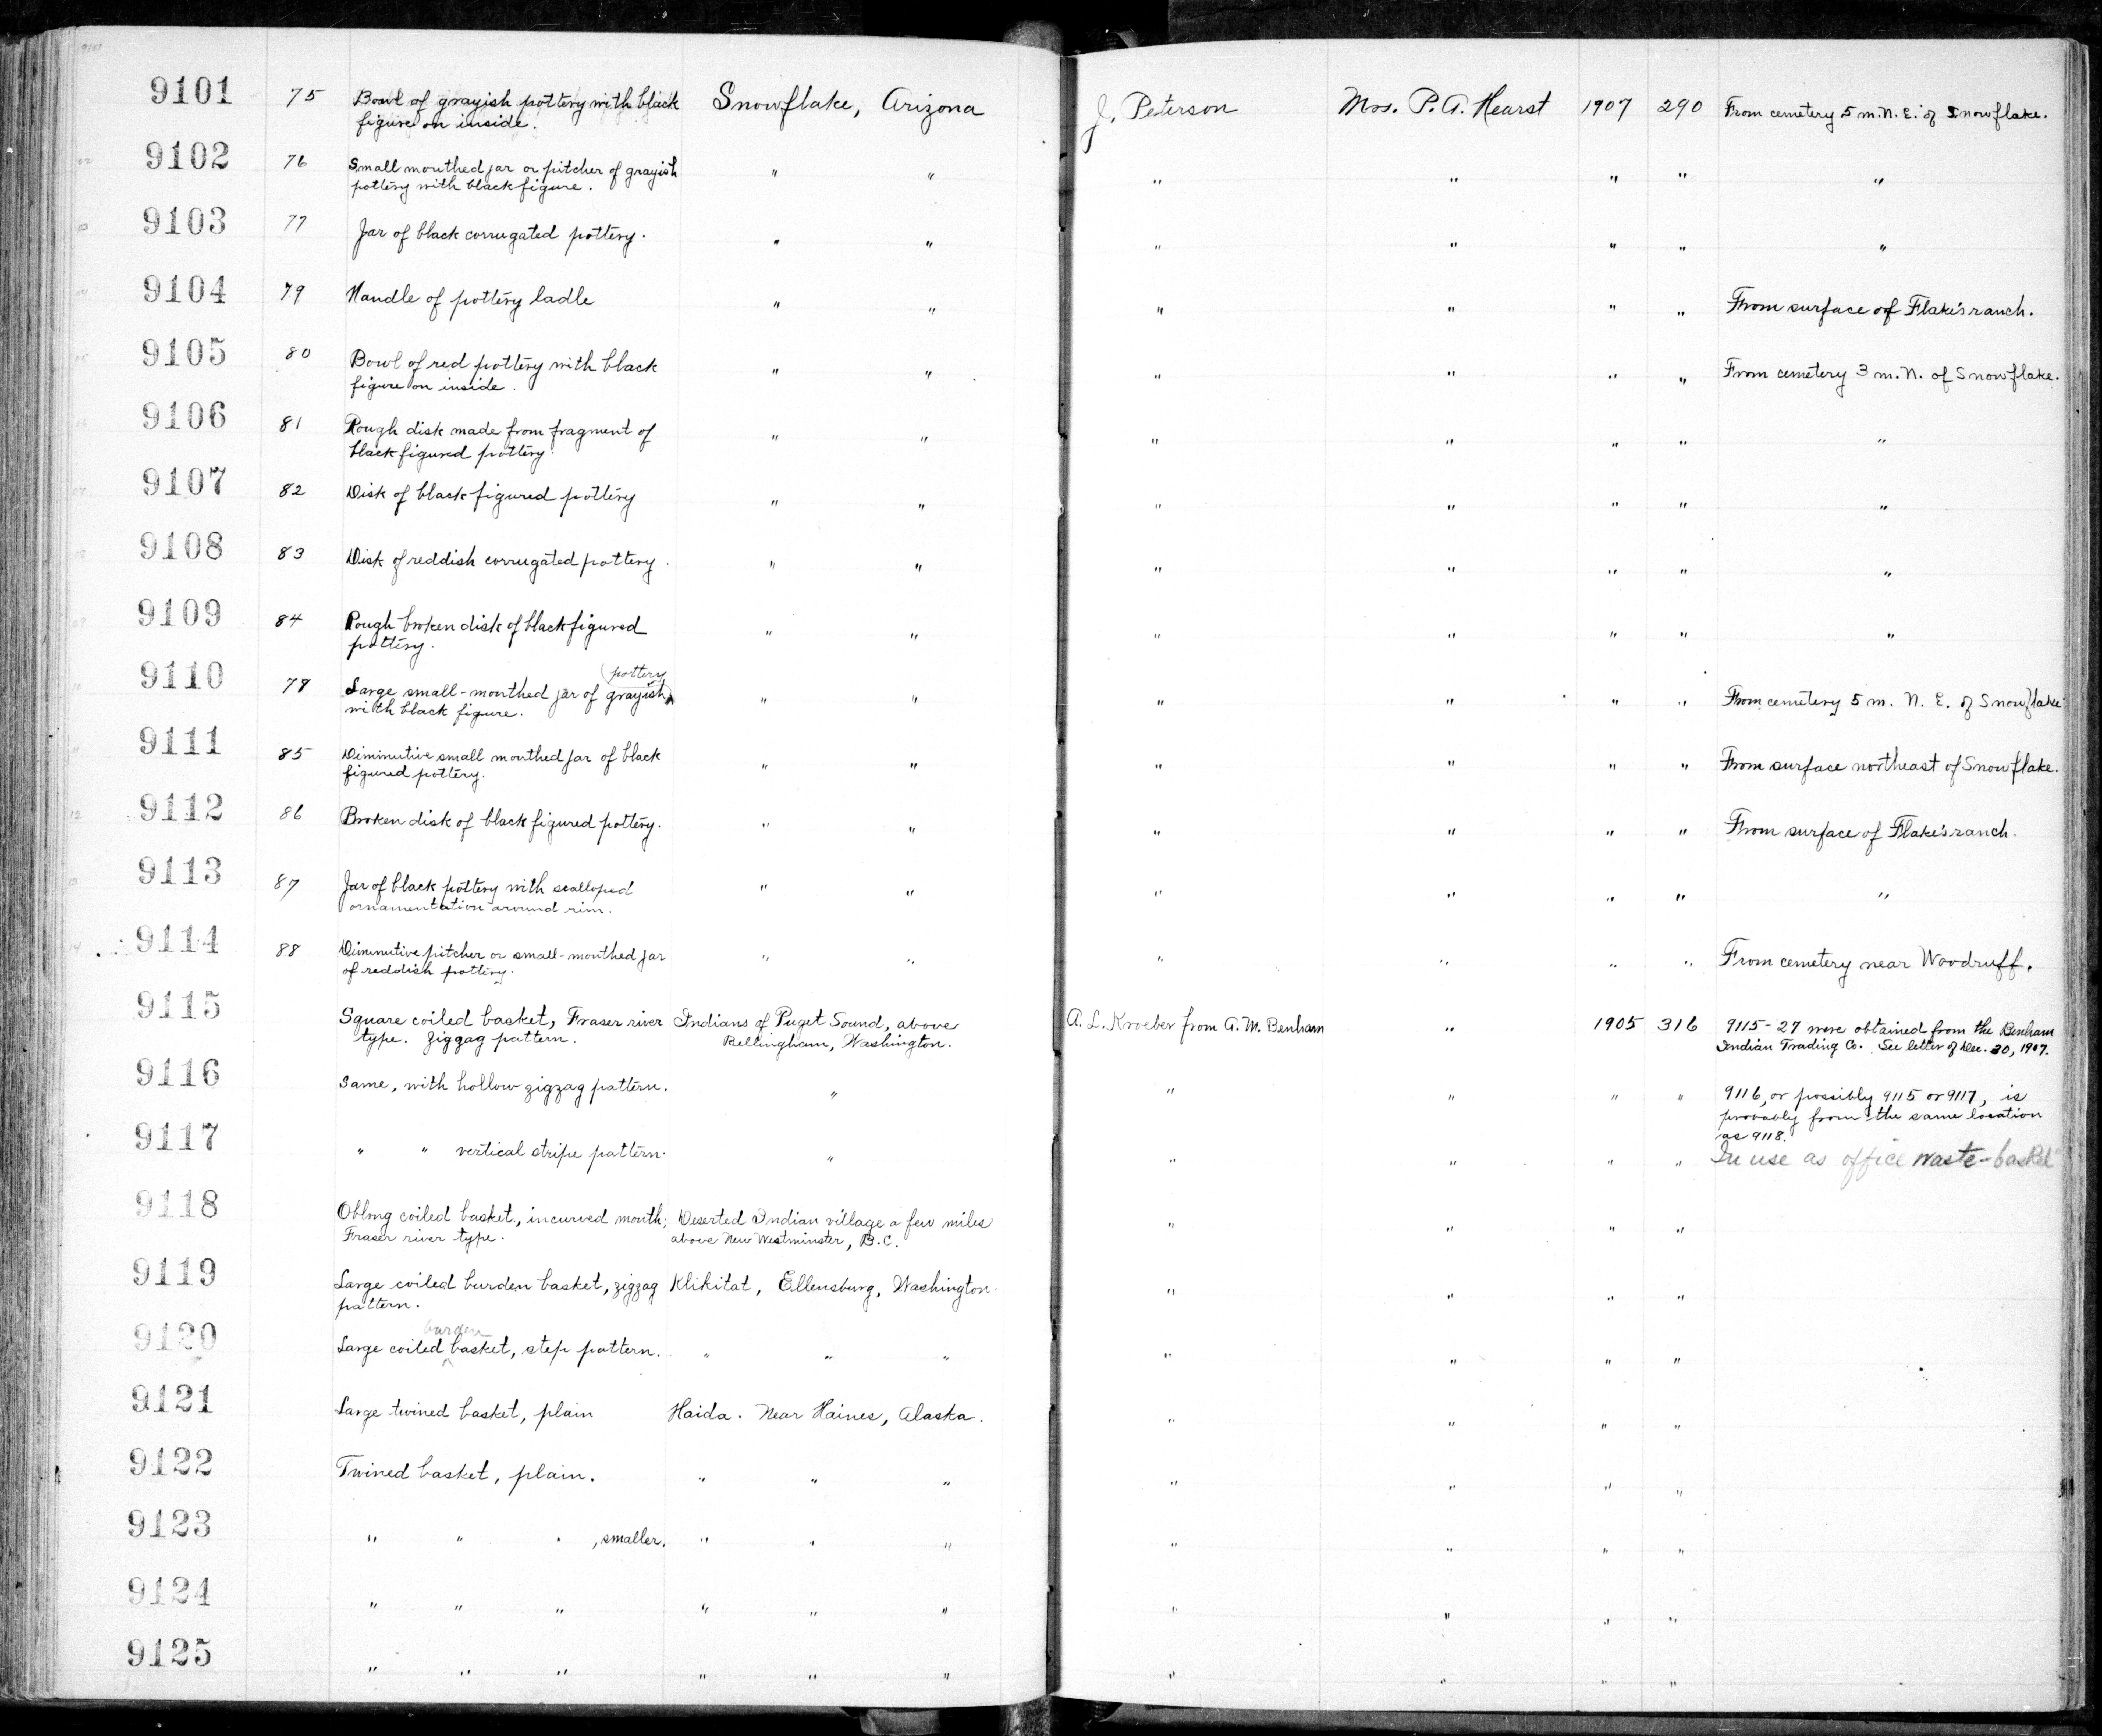 9101 75 Bowl of grayish pottery with black Snowflake, Arizona J. Peterson Mrs. P. A. Hearst 1907 290 From cemetery 5 m. N. E. of Snowflake.
figure on inside.
9102 76 Small mouthed jar or pitcher of grayish " " " " " " "
pottery with black figure.
9103 77 Jar of black corrugated pottery. " " " " " " "
9104 79 Handle of pottery ladle " " " " " " From surface of Flake's ranch.
9105 80 Bowl of red pottery with black " " " " " " From cemetery 3 m. N. of Snowflake.
figure on inside.
9106 81 Rough disk made from fragment of " " " " " " "
black figured pottery.
9107 82 Disk of black figured pottery " " " " " " "
9108 83 Disk of reddish corrugated pottery. " " " " " " "
9109 84 Rough broken disk of black figured " " " " " " "
pottery.
9110 78 Large small-mouthed jar of grayish pottery " " " " " " From cemetery 5 m. N. E. of Snowflake
with black figure.
9111 85 Diminutive small mouthed jar of black " " " " " " From surface northeast of Snowflake.
figured pottery.
9112 86 Broken disk of black figured pottery. " " " " " " From surface of Flake's ranch.
9113 87 Jar of black pottery with scalloped " " " " " " "
ornamentation around rim.
9114 88 Diminutive pitcher or small-mouthed jar " " " " " " From cemetery near Woodruff.
of reddish pottery.
9115 Square coiled basket, Fraser river Indians of Puget Sound, above A. L. Kroeber from A. M. Benham " 1905 316 9115-27 were obtained from the Benham
type. Zigzag pattern. Bellingham, Washington. Indian Trading Co. See letter of Dec. 30, 1907.
9116 Same, with hollow zigzag pattern. " " " " " 9116, or possibly 9115 or 9117, is
probably from the same location
as 9118.
9117 " " vertical stripe pattern. " " " " " In use as office waste-basket
9118 Oblong coiled basket, incurved mouth; Deserted Indian village a few miles " " " "
Fraser river type. above New Westminster, B.C.
9119 Large coiled burden basket, zigzag Klikitat, Ellensburg, Washington. " " " "
pattern.
9120 Large coiled burden basket, step pattern. " " " " " " "
9121 Large twined basket, plain Haida. Near Haines, Alaska. " " " "
9122 Twined basket, plain. " " " " " " "
9123 " " " , smaller. " " " " " " "
9124 " " " " " " " " " "
9125 " " " " " " " " " "